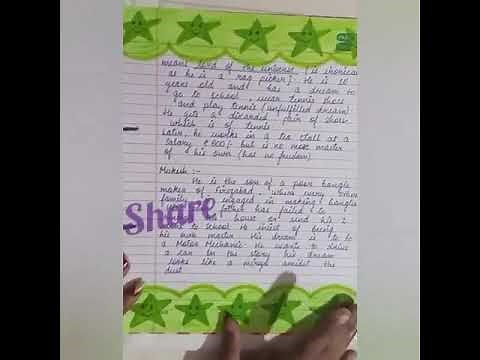 means lord of the universe (is ironical
as he is a rag picker). He is 10
years old and has a dream to
go to school, wear tennis shoes
and play tennis (unfulfilled dream)
He gets a discarded pair of shoes
which is of tennis
Later, he works in a tea stall at a
salary ₹ 800/- but is no more master
of his own (has no freedom)
Mukesh :-
He is the son of a poor bangle
maker of Firozabad, where every other
family engaged in making bangle
father has failed to
house or send his 2
to school. He insist of being
his own master. His dream is to be
a Motor Mechanic. He wants to drive
a car. In the story his dream
looks like a mirage amidst the
dust
Share